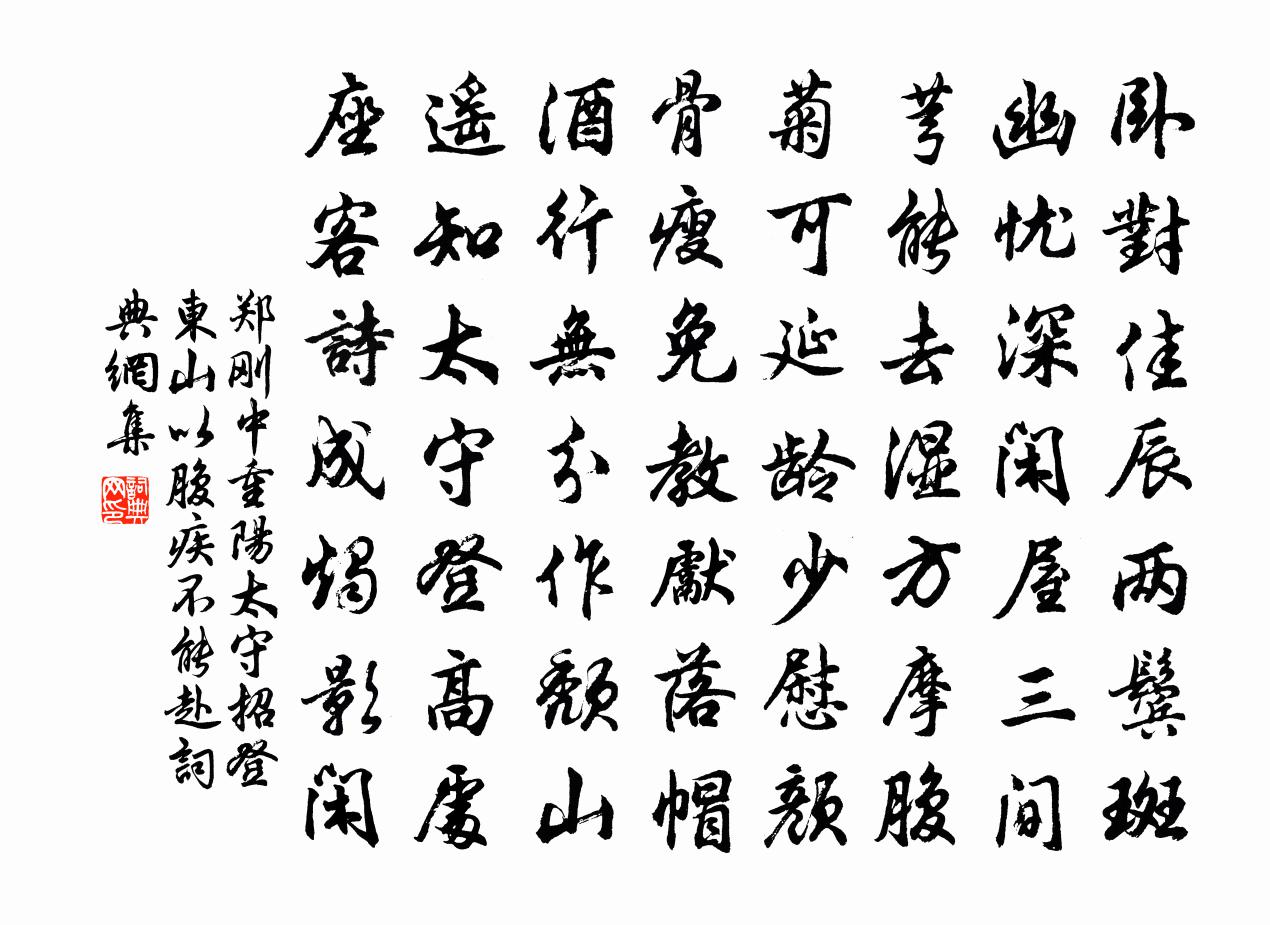 卧對佳辰两鬓斑
幽忧深闲屋三间
芎能去湿方摩腹
菊可延龄少慰顔
骨瘦免教獻落帽
酒行無分作頹山
遥知太守登高處
座客詩成燭影闲
郑刚中重陽太守招登
東山以腹疾不能赴詞
典網集
詞典
网印